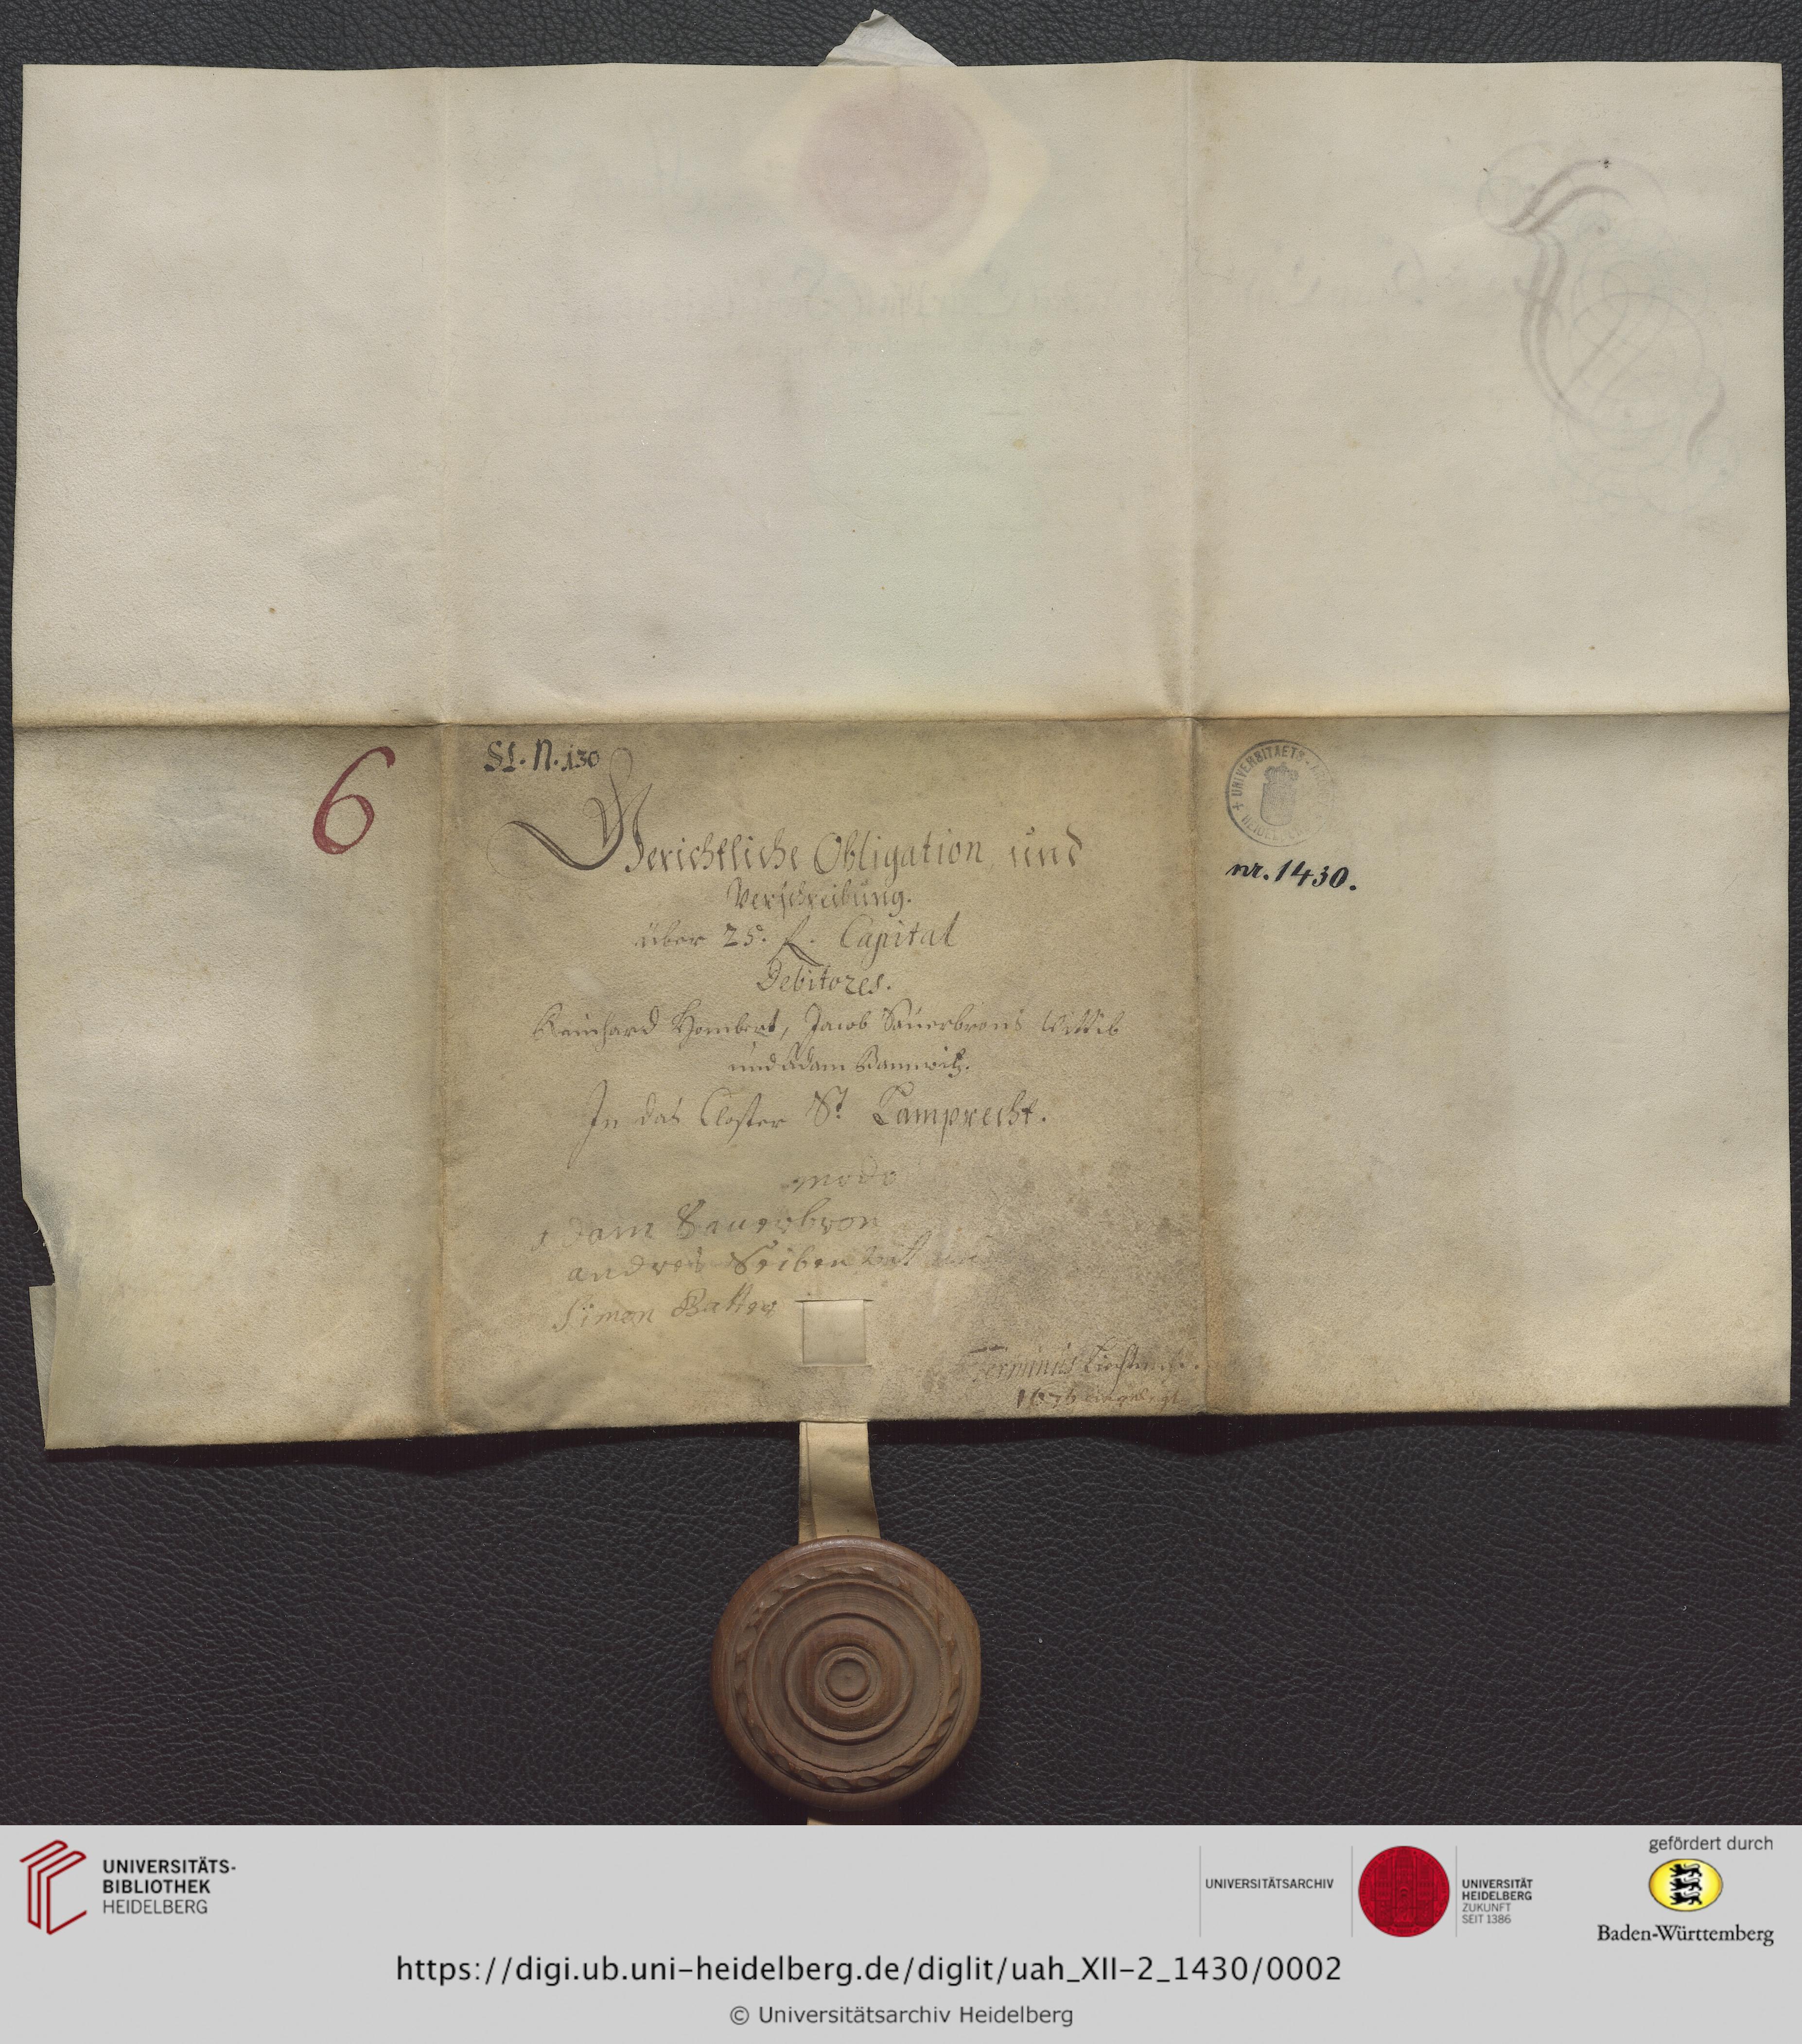 6
St. N. 130
Gerichtliche Obligation, und
Verschreibung.
über 25. f. Capital
Debitores.
Reinhard Hombert, Jacob Sauerbrons Wittib
und Adam
In das Closter St. Lamprecht.
modo
Adam Sauerbron
andres Seiben
Simon Batter
Terminus
UNIVERSITAETS
nr. 1430.
UNIVERSITÄTS-
BIBLIOTHEK
HEIDELBERG
UNIVERSITÄTSARCHIV
UNIVERSITÄT
HEIDELBERG
ZUKUNFT
SEIT 1386
gefördert durch
Baden-Württemberg
https://digi.ub.uni-heidelberg.de/diglit/uah_XII-2_1430/0002
© Universitätsarchiv Heidelberg